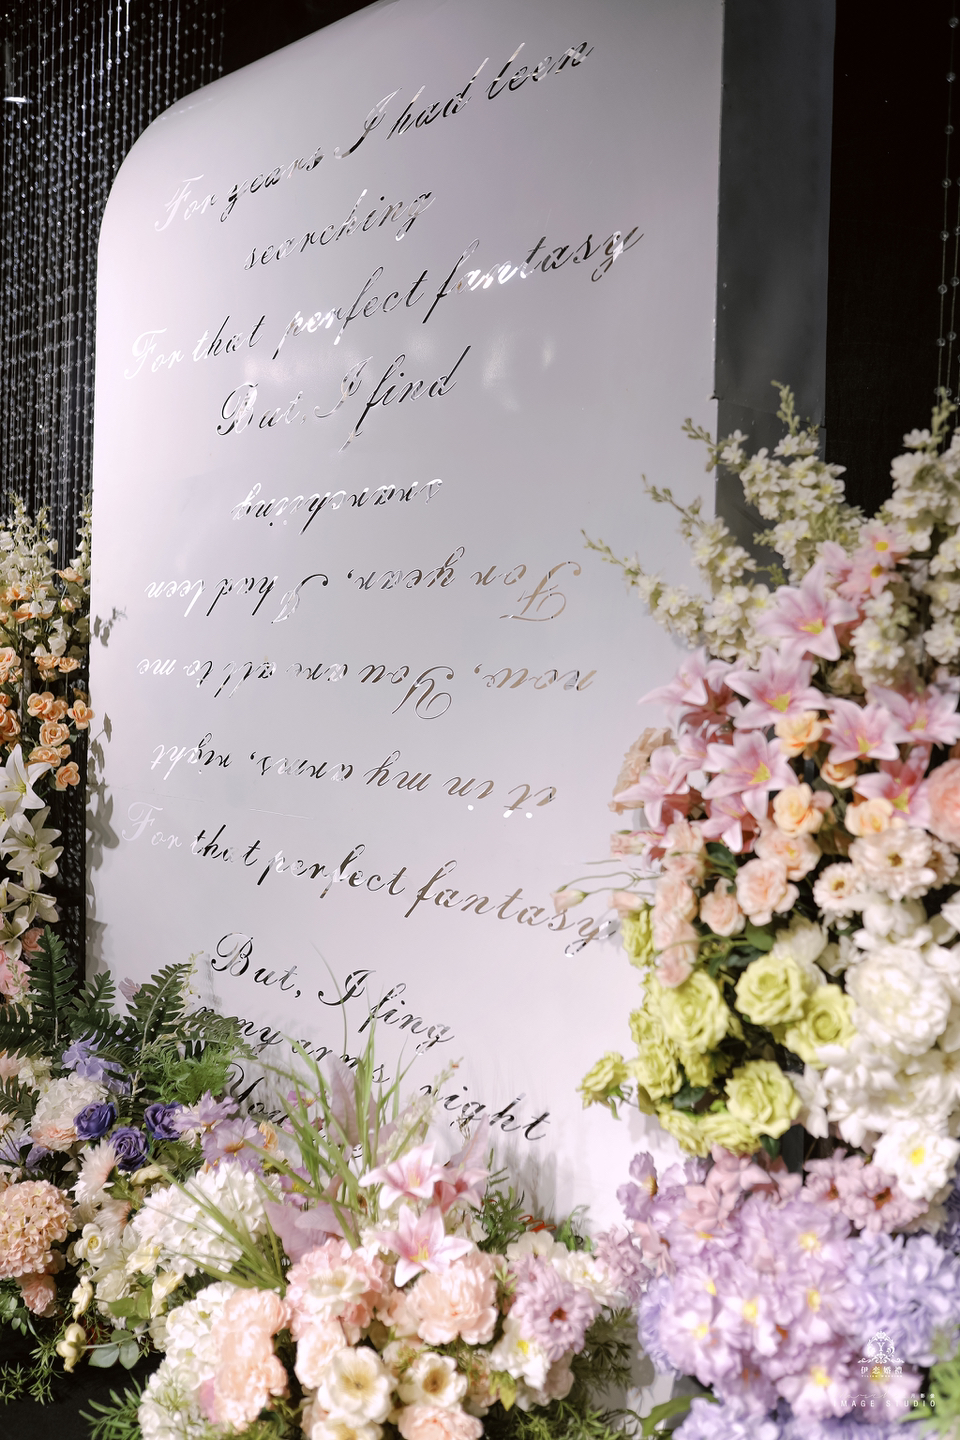 For years I had leen
searching
For that perfect fantasy
But, I find
snarching
For year, I had leen
now, You are all to me
it in my arms, right
For that perfect fantasy
But, I fing
my arms
right
You
伊恋婚礼
MAGE STUDIO